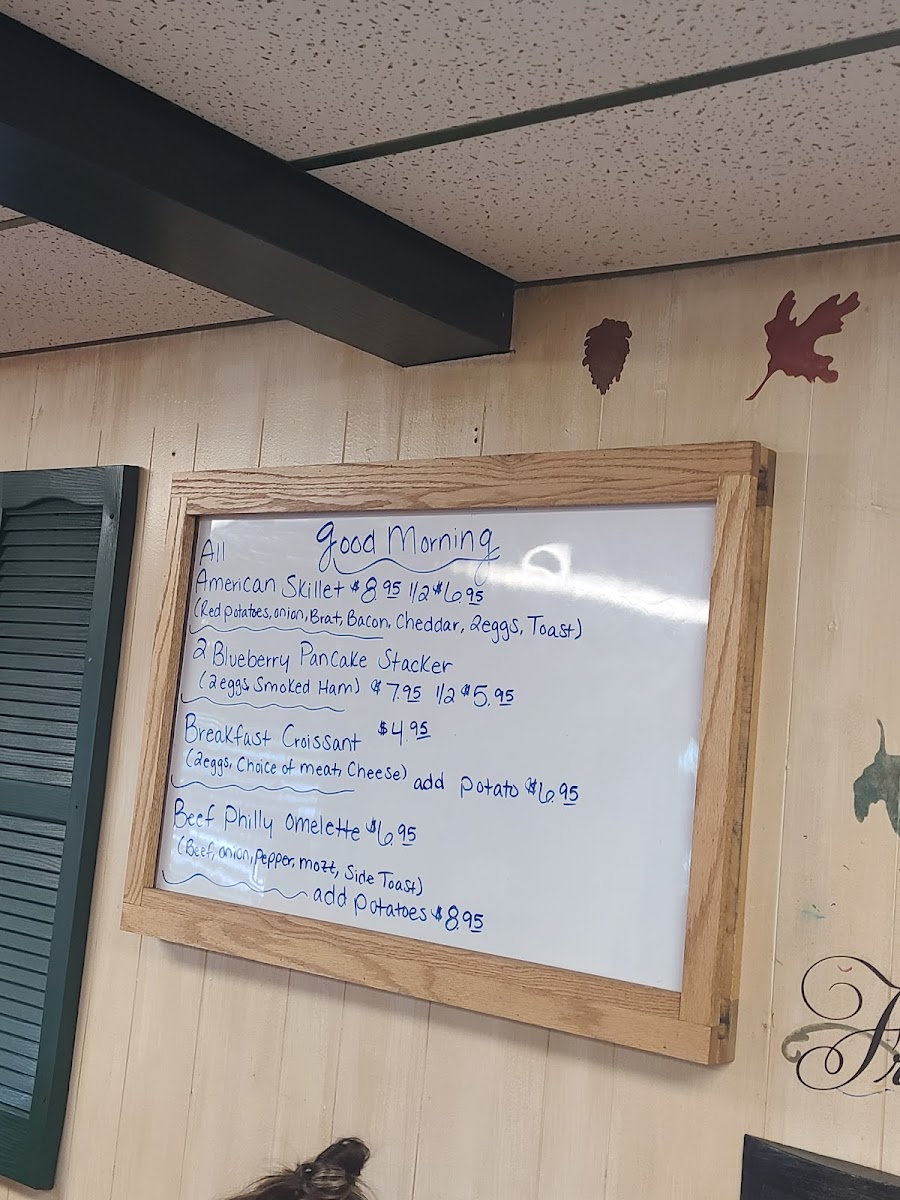 Good Morning
All
American Skillet $8.95 1/2 $6.95
(Red potatoes, onion, Brat, Bacon, Cheddar, 2eggs, Toast)
2 Blueberry Pancake Stacker
(2eggs, Smoked Ham) $7.95 1/2 $5.95
Breakfast Croissant $4.95
(2eggs, Choice of meat, Cheese) add potato $6.95
Beef Philly omelette $6.95
(Beef, onion, pepper, mozz, Side Toast)
add potatoes $8.95